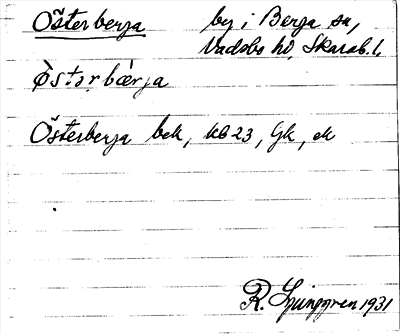 Österberga by i Berga sn,
Vadsbo hd, Skarab. l.
östərbærja
Österberga bek, KB 23, Gk, ek
R. Ljunggren 1931